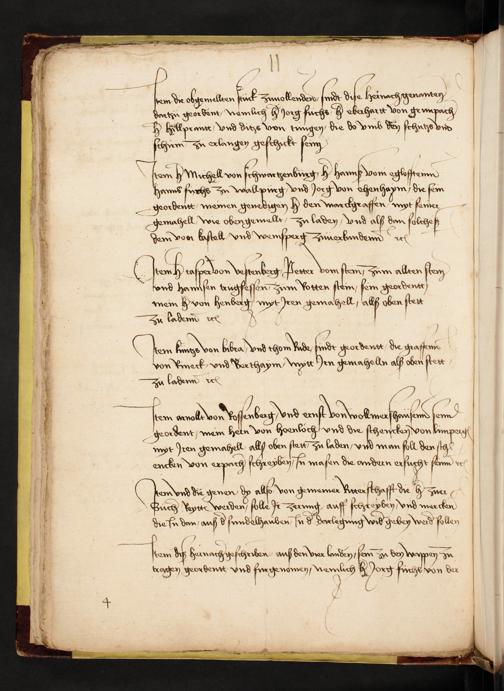 11
Item die obgemelten stuck zuuollenden sindt dise heinach genanten
dartzu geordent nemlich h Jorg fuchs h eberhartt von grumpach
h hilpranntt und ditzs von tungen die do umb den schutzs und
schirm zu erlangen geschickt sein
Item h Michell von schwartzenburg h hanns vom eglofsteinn
hanns fuchs zu wallpurg und Jorg von ehenhaym die sein
geordent meinen genedigen h den marckgraffen myt seiner
gemahell wie obengemelt zu laden und als dan solches
dem von kastell und wemsperg zuuerkunden etc
Item h casper von vestenberg Petter vom stein zum allten stein
und hannsen trugsessen zum Rotten stein sein geordentt
mein h von henberg myt Iren gemahell alls oben stett
zu laden etc
Item kuntzs von bibra und thom Rude sindt geordentt die graffenn
von Rineck und Werthaym mytt Irn gemahelln als oben stett
zu laden etc
Item arnollt von Rossenberg und ernst von wollmershausenn seind
geordent mein hern von hoenloch und die schencken von limperg
myt Iren gemahell alls oben stett zu laden und man soll den sch
encken von erpach schreyben In masen die andern ersucht sein etc
Item und die genen dy allso von gemeiner Ritterschafft die h zuer
Such Reytte werden solle Ir zerung auff schreyben und mercken
die In dan aus d sundelhauben In d darlegung wid geben werd sollen
Item diß heinach geschriben aus den vier landen sein zu den wappen zu
tragen geordentt und furgenomen nemlich h Jorg fuchs von der
4